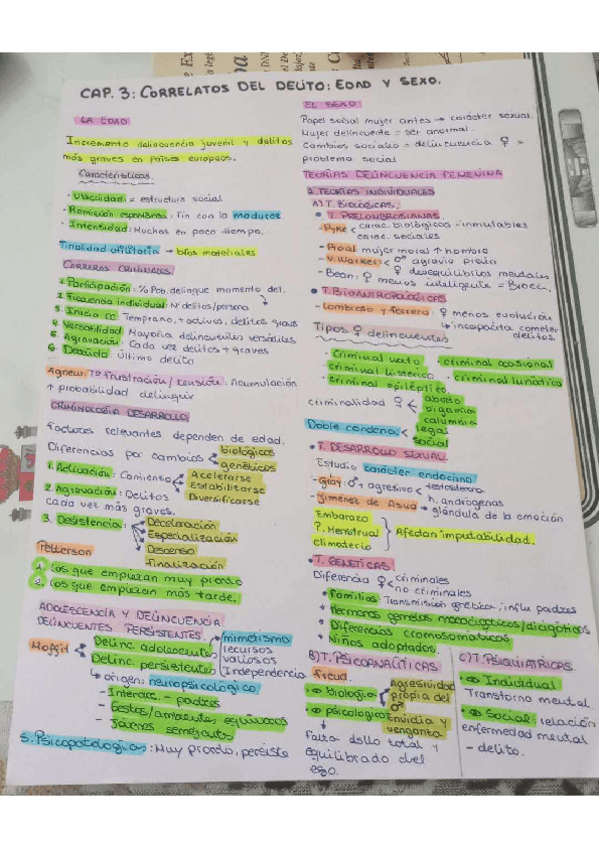 CAP. 3: CORRELATOS DEL DELITO: EDAD Y SEXO.
LA EDAD
Incremento delincuencia juvenil y delitos
más graves en países europeos.
Características.
· Ubicuidad = estructura social
· Remisión espontánea: Fin con la madurez
· Intensidad: Muchos en poco tiempo.
Finalidad utilitaria → bfos materiales
CARRERAS CRIMINALES
1. Participación: % Pob. delinque momento det.
2. Frecuencia individual: Nº delitos/persona
3. Inicio CC: Temprano, + activos, delitos graves
4. Versatilidad: Mayoría delincuentes versátiles
5. Agravación: Cada vez delitos + graves
6. Último delito
Agnew: Tª Frustración / tensión: Acumulación
↑ probabilidad delinquir
CRIMINOLOGÍA DESARROLLO
Factores relevantes dependen de edad.
Diferencias por cambios biológicos
genéticos
1. Activación: Comienzo Acelerarse
Estabilizarse
Diversificarse
2. Agravación: Delitos
cada vez más graves.
3. Desistencia: Deceleración
Especialización
Descenso
Finalización
Patterson
1. Los que empiezan muy pronto
2. Los que empiezan más tarde.
ADOLESCENCIA Y DELINCUENCIA
DELINCUENTES PERSISTENTES.
Moffit Delinc. adolescente mimetismo
recursos
valiosos
Independencia
Delinc. persistente
↳ origen: neuropsicológico
- Interacc. - padres
- Gestos/ambientes equívocos
- Jóvenes semejantes
S. Psicopatológicos: Muy pronto, persiste
EL SEXO
Papel social mujer antes → carácter sexual.
Mujer delincuente = ser anormal.
Cambios sociales = delincuencia ♀ =
problema social
TEORÍAS DELINCUENCIA FEMENINA
1. TEORÍAS INDIVIDUALES
A) T. BIOLÓGICAS.
· T. PRELOMBROSIANAS
- Ryke carac. biológicos - inmutables
carac. sociales
- Proal: mujer moral ↑ hombre
- V. Warker: ♂ agravio precio
- Bean: ♀ desequilibrios mentales
♀ menos inteligente = Broca.
· T. BIOANTROPOLÓGICAS
- Lombroso y Ferrero: ♀ menos evolución
↳ incapacita cometer
delitos.
Tipos ♀ delincuentes
· Criminal nata · criminal ocasional
· criminal histérica · criminal lunática
· criminal epiléptica
criminalidad ♀ aborto
bigamia
calumnia
Doble condena legal
social
· T. DESARROLLO SEXUAL.
Estudio carácter endocrino
- Gray: ♂ + agresivo testosterona
h. andrógenas
- Jiménez de Asúa → glándula de la emoción
Embarazo
P. Menstrual
climaterio
Afectan imputabilidad.
· T. GENÉTICAS.
Diferencia ♀ criminales
no criminales
· Familias: Transmisión genética, influ padres
· Hermanos gemelos monocigóticos/dicigóticos
· Diferencias cromosomáticas
· Niños adoptados.
B) T. PSICOANALÍTICAS.
Freud.
· biológico Agresividad
propia del
♂
· psicológico Envidia y
venganza
Falta dsllo total y
equilibrado del
ego.
C) T. PSIQUIÁTRICAS.
· Individual
Transtorno mental.
· Social: relación
enfermedad mental
- delito.